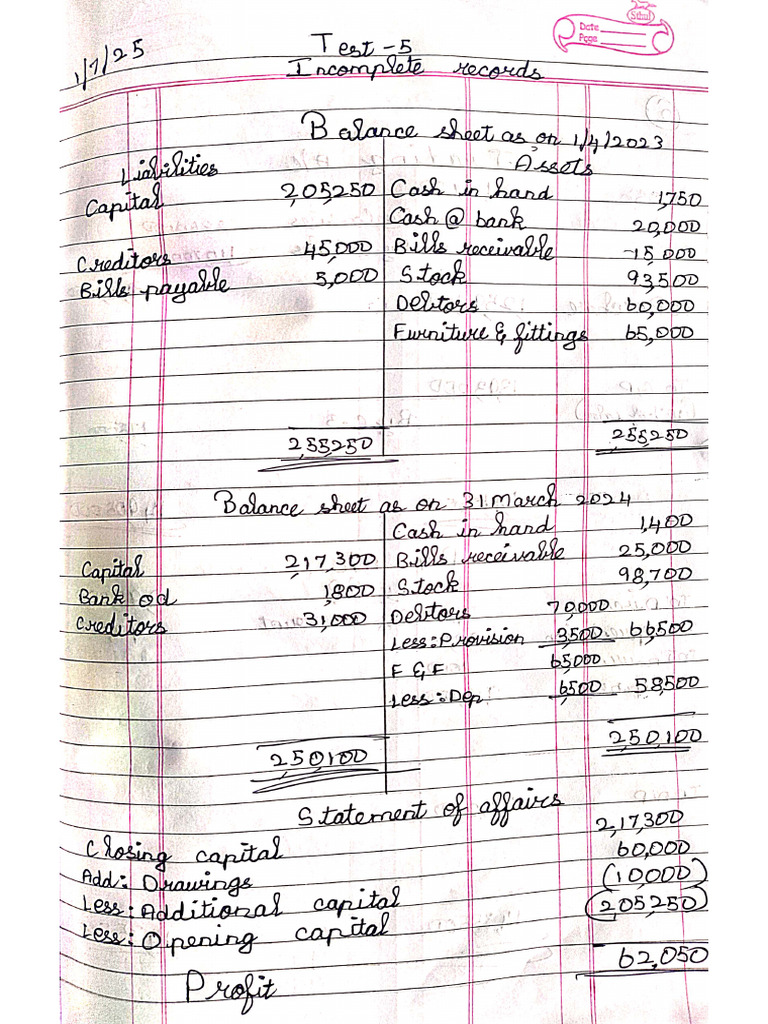 Sthul
Date
Page
1/7/25
Test-5
Incomplete records
Balance sheet as on 1/4/2023
Liabilities Assets
Capital 2,05,250 Cash in hand 1,750
Cash @ bank 20,000
Creditors 45,000 Bills receivable 15,000
Bills payable 5,000 Stock 93,500
Debtors 60,000
Furniture & fittings 65,000
2,55,250 2,55,250
Balance sheet as on 31 March 2024
Cash in hand 1,400
Capital 2,17,300 Bills receivable 25,000
Bank od 1,800 Stock 98,700
Creditors 31,000 Debtors 70,000
Less: Provision 3,500 66,500
F & F 65,000
Less: Dep 6,500 58,500
2,50,100 2,50,100
Statement of affairs
Closing capital 2,17,300
Add: Drawings 60,000
Less: Additional capital (10,000)
Less: Opening capital (2,05,250)
Profit 62,050